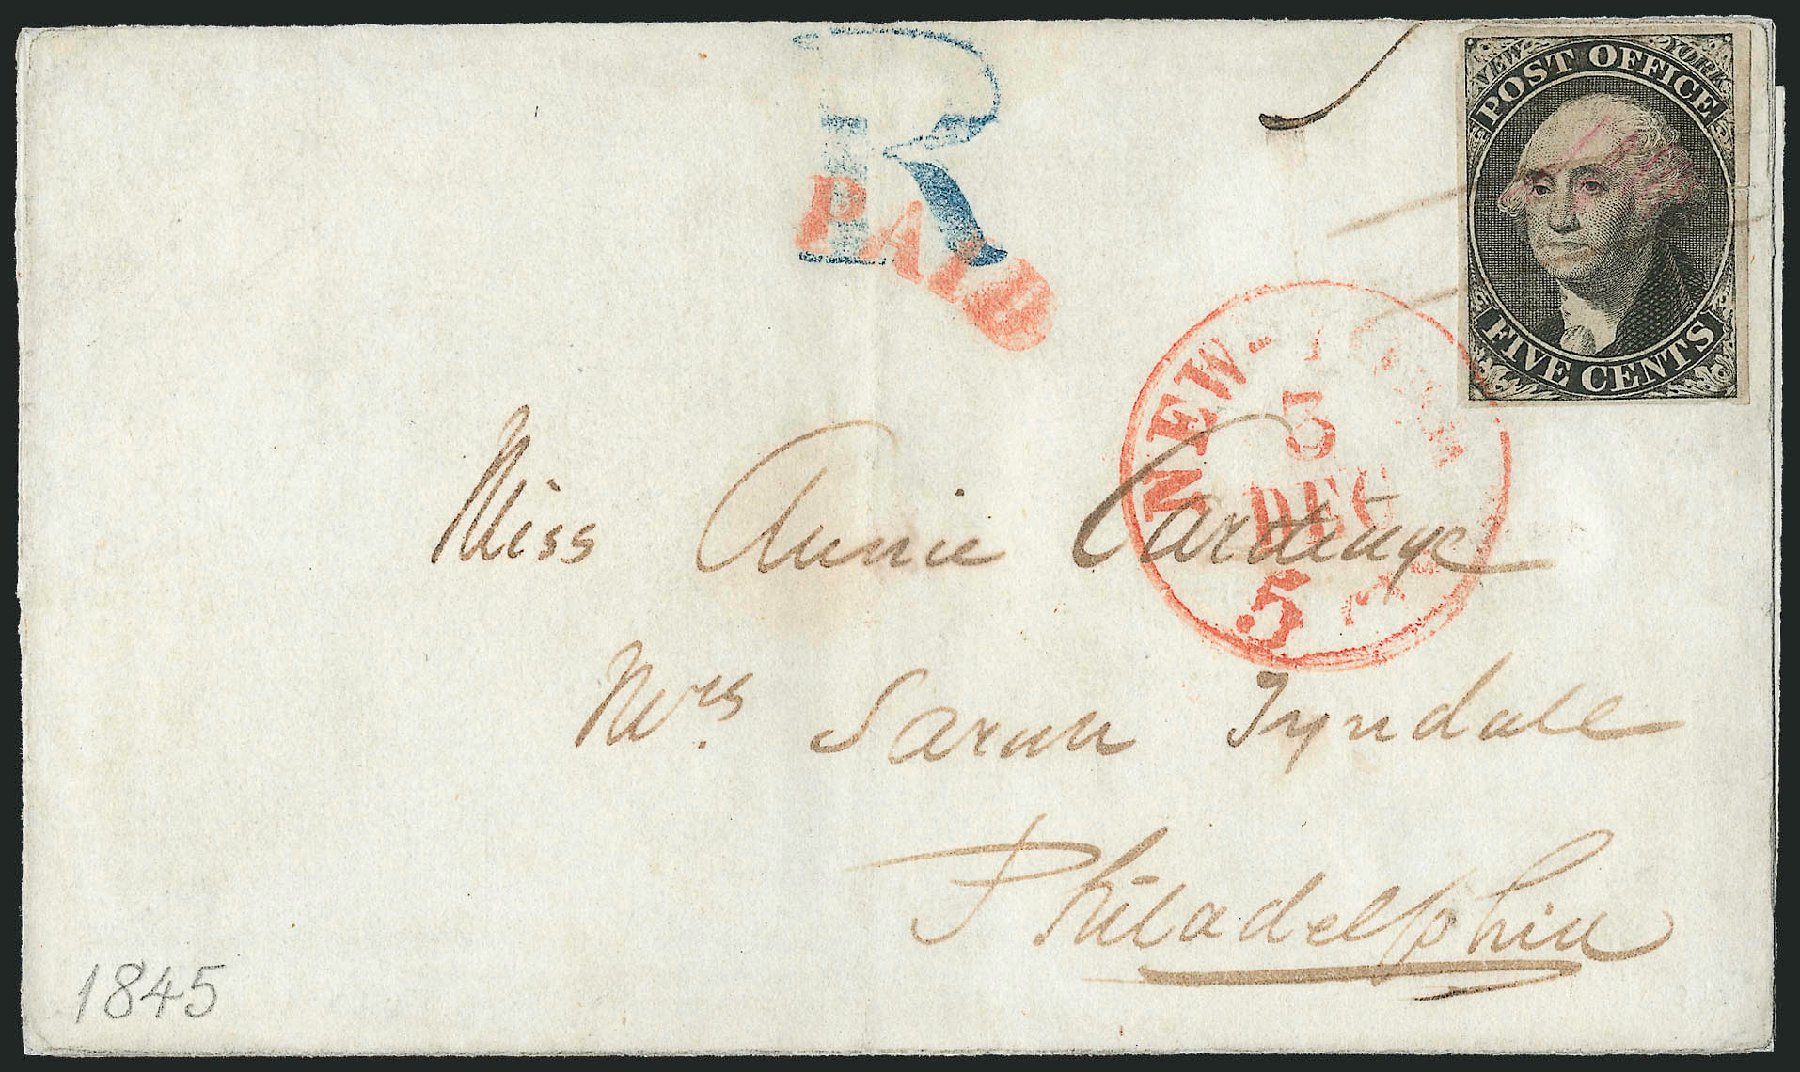 R
PAID
NEW YORK
POST OFFICE
FIVE CENTS
NEW-YORK
5
DEC
5 cts
Miss Annie
Mrs Sarah Tyndale
Philadelphia
1845